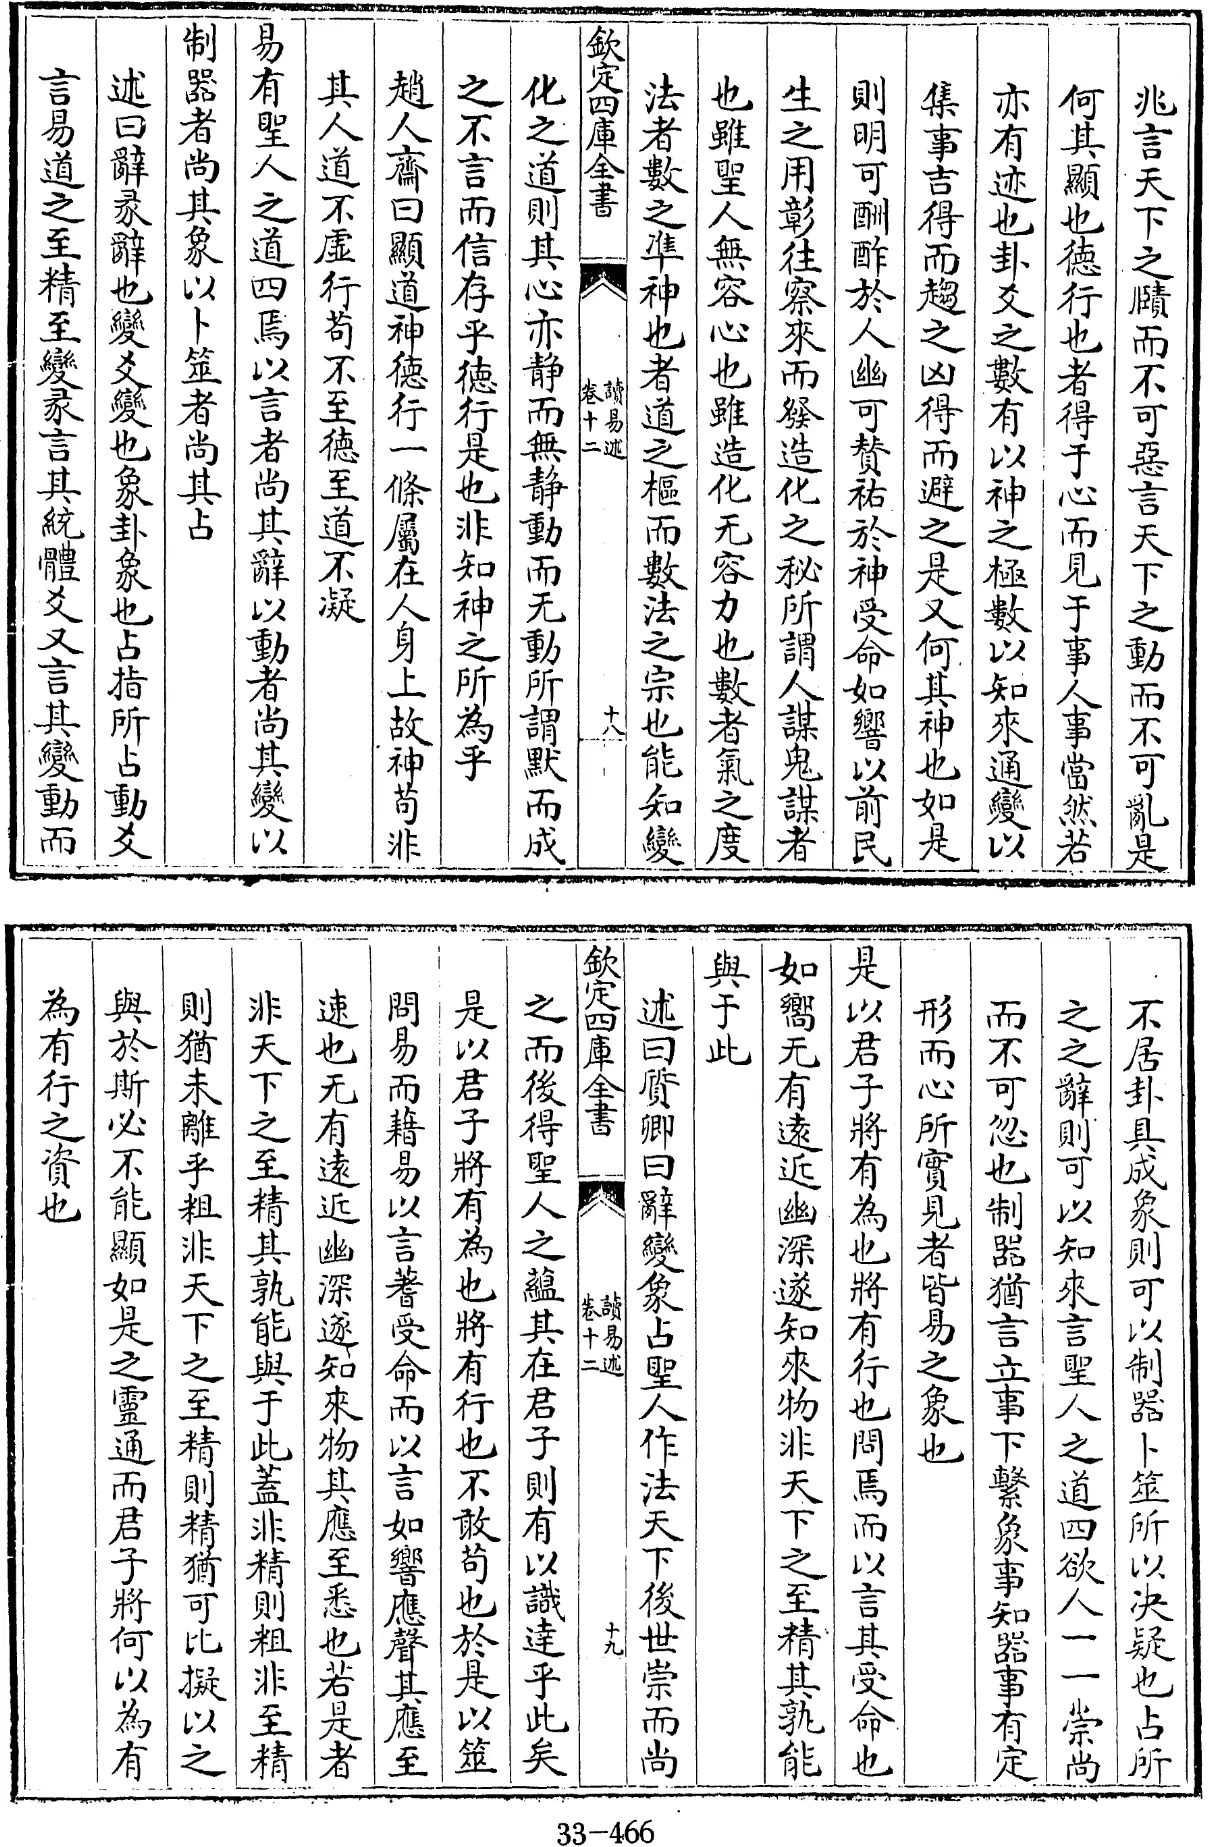 兆言天下之賾而不可惡言天下之動而不可亂是
何其顯也德行也者得于心而見于事人事當然若
亦有迹也卦爻之數有以神之極數以知來通變以
集事吉得而趨之凶得而避之是又何其神也如是
則明可酬酢於人幽可賛祐於神受命如響以前民
生之用彰往察來而發造化之秘所謂人謀鬼謀者
也雖聖人無容心也雖造化无容力也數者氣之度
法者數之準神也者道之樞而數法之宗也能知變
欽定四庫全書
讀易述
卷十二
十八
化之道則其心亦静而無静動而无動所謂默而成
之不言而信存乎德行是也非知神之所為乎
趙人齋曰顯道神德行一條屬在人身上故神苟非
其人道不虛行苟不至德至道不凝
易有聖人之道四焉以言者尚其辭以動者尚其變以
制器者尚其象以卜筮者尚其占
述曰辭彖辭也變爻變也象卦象也占指所占動爻
言易道之至精至變彖言其統體爻又言其變動而
不居卦具成象則可以制器卜筮所以決疑也占所
之之辭則可以知來言聖人之道四欲人一一崇尚
而不可忽也制器猶言立事下繫象事知器事有定
形而心所實見者皆易之象也
是以君子將有為也將有行也問焉而以言其受命也
如嚮无有遠近幽深遂知來物非天下之至精其孰能
與于此
述曰質卿曰辭變象占聖人作法天下後世崇而尚
欽定四庫全書
讀易述
卷十二
十九
之而後得聖人之藴其在君子則有以識達乎此矣
是以君子將有為也將有行也不敢苟也於是以筮
問易而藉易以言蓍受命而以言如響應聲其應至
速也无有遠近幽深遂知來物其應至悉也若是者
非天下之至精其孰能與于此蓋非精則粗非至精
則猶未離乎粗非天下之至精則精猶可比擬以之
與於斯必不能顯如是之靈通而君子將何以為有
為有行之資也
33-466